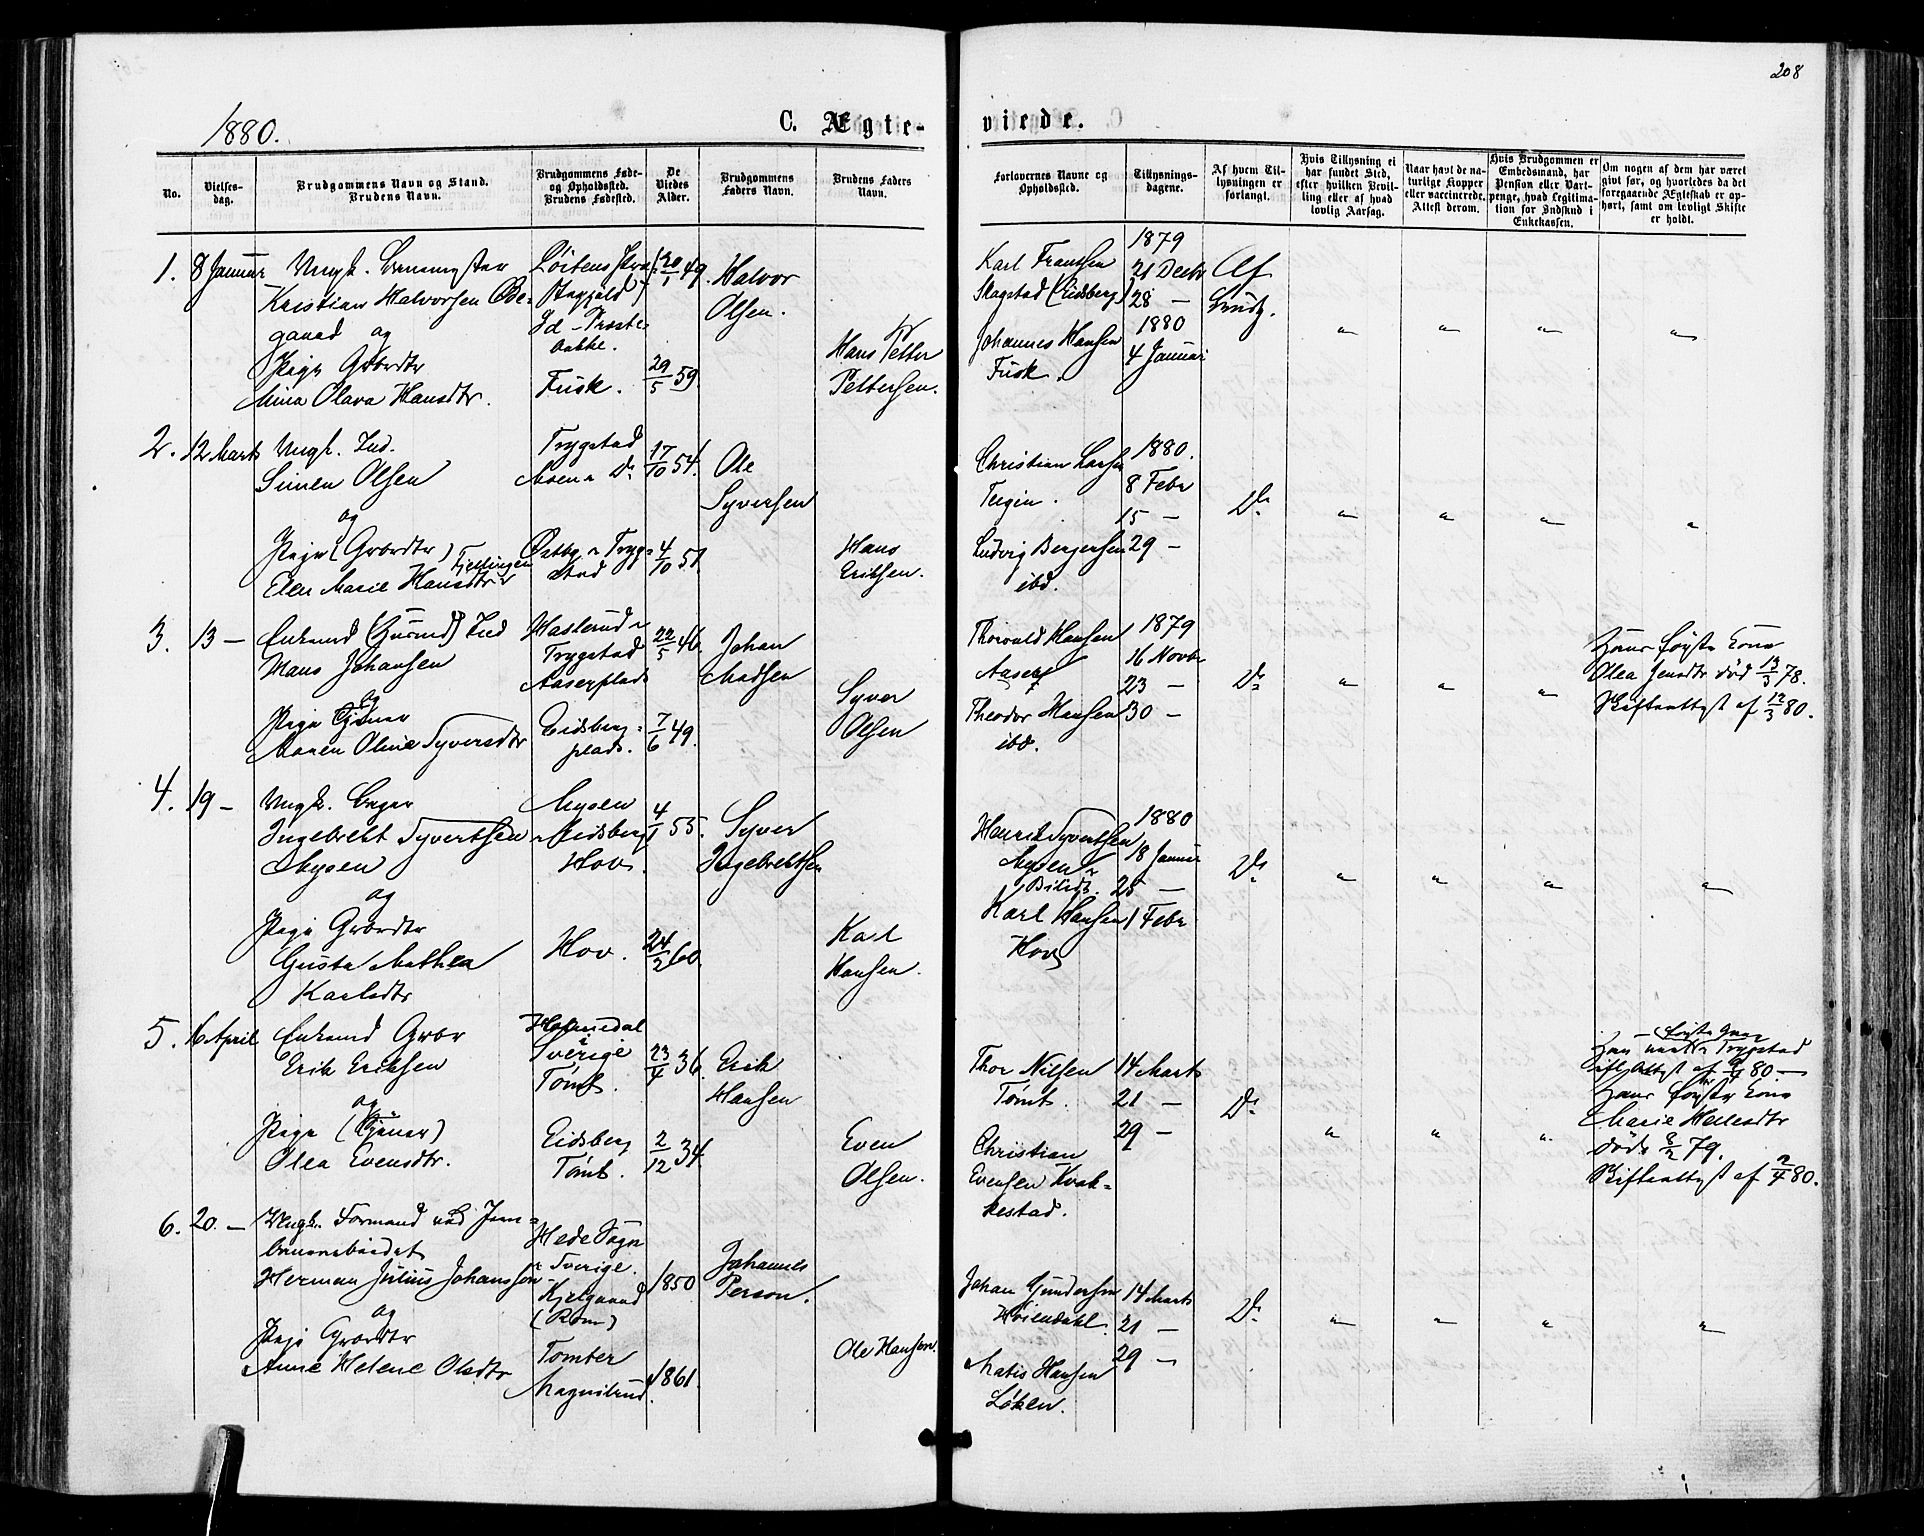 208
1880.
C. Ægte-
viede.
No.
Vielses-
dag.
Brudgommens Navn og Stand.
Brudens Navn.
Brudgommens Føde-
og Opholdssted.
Brudens Fødested.
De
Viedes
Alder.
Brudgommens
Faders Navn.
Brudens Faders
Navn.
Forlovernes Navne og
Opholdssted.
Tillysnings-
dagene.
Af hvem Til-
lysningen er
forlangt.
Hvis Tillysning ei
har fundet Sted,
efter hvilken Bevil-
ling eller af hvad
lovlig Aarsag.
Naar havt de na-
turlige Kopper
eller vaccinerede.
Attest derom.
Hvis Brudgommen er
Embedsmand, har
Pension eller Vart-
penge, hvad Legitima-
tion for Indskud i
Enkekassen.
Om nogen af dem har været
givt før, og hvorledes da det
foregaaende Ægteskab er op-
hørt, samt om lovligt Skifte
er holdt.
1. 8 Januar
Ungk.
Kristian Halvorsen
gaard og
Pige Grbrdtr
Mina Olava Hansdtr.
Id - Præste-
bakke.
Fusk.
20/1 49.
29/5 59.
Halvor
Olsen.
Hans Petter
Pettersen.
Karl Frantsen
Slagstad (Eidsberg)
Johannes Hansen
Fusk.
1879
21 Decbr
28 —
1880
4 Januar
Af
Brudg.
" " " "
2. 12 Marts
Ungk. Ind.
Simen Olsen
og
Pige (Grbrdtr)
Elen Marie Hansdtr
Trygstad
Moen Do
Østby Tryg-
stad
17/10 54.
4/10 51.
Ole
Syversen
Hans
Eriksen.
Christian Larsen
Teigen.
Ludvig Bergersen
ibd.
1880.
8 Febr
15 —
29 —
Do
" " " "
3. 13 —
Enkemd (Husmd) Ind
Hans Johansen
og
Pige Tjener
Maren Oline Syversdtr
Haslerud
Trygstad
Aaserplads
Eidsberg-
plads.
22/5 46.
7/6 49.
Johan
Madsen
Syver
Olsen
Thorvald Hansen
Aaser
Theodor Hansen
ibd.
1879
16 Novbr
23 —
30 —
Do
" " "
Hans første Kone
Olea Jensdtr død 13/5 78.
Skifteattest af 12/3 80.
4. 19 —
Ungk.
Ingebrekt Syvertsen
Mysen
og
Pige Grbrdtr
Gusta Mathea
Karlsdtr
Mysen
Eidsberg
Hov.
Hov.
4/1 55.
24/2 60.
Syver
Ingebrektsen
Karl
Hansen.
Henrik Syvertsen
Mysen
Karl Hansen
Hov
1880
18 Januar
25 —
1 Febr
Do
" " " "
5. 16 April
Enkemd Grbr
Erik Eriksen
og
Pige (Tjener)
Olea Evensdtr.
Sverige
Tømt.
Eidsberg
Tømt.
23/4 36.
2/12 34.
Erik
Hansen
Even
Olsen.
Thor Nilsen
Tømt.
Christian
Evensen Kvak-
kestad.
14 Marts
21 —
29 —
Do
" " "
første Gang
Trygstad
Hans første Kone
død 8/2 79.
Skifteattest af 2/4 80.
6. 20. —
Ungk. Formand ved Jern-
banearbeidet
Herman Julius Johansson
og
Pige Grbrdtr
Anne Helene Olsdtr
Hede Sogn
Sverige.
Tomter
1850
1861.
Johannes
Person.
Ole Hansen.
Johan Gundersen
Høiendahl.
Matis Hansen
Løken.
14 Marts
21 —
29 —
Do
" " " "